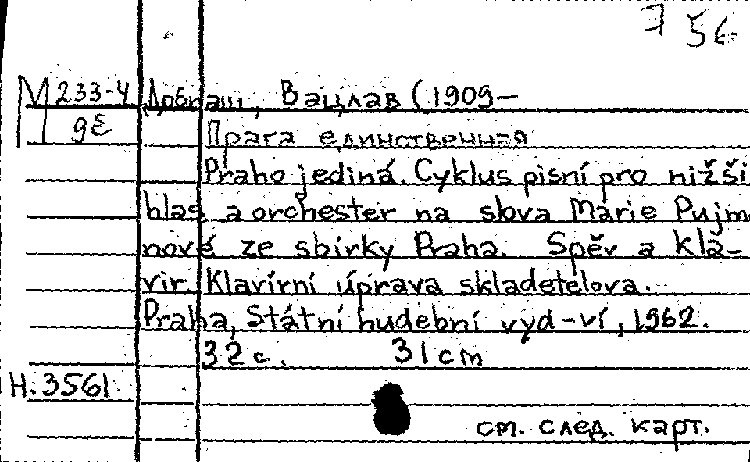 56
М 233-4 Добиаш, Вацлав (1909-
98 Прага единственная
Praho jediná. Cyklus písní pro nižší
hlas a orchester na slova Marie Pujm
nové ze sbírky Praha. Spěv a kla-
vír. Klavírní úprava skladetelova.
Praha, Státní hudební vyd-ví, 1962.
32 с. 31 cm
Н.3561
см. след. карт.